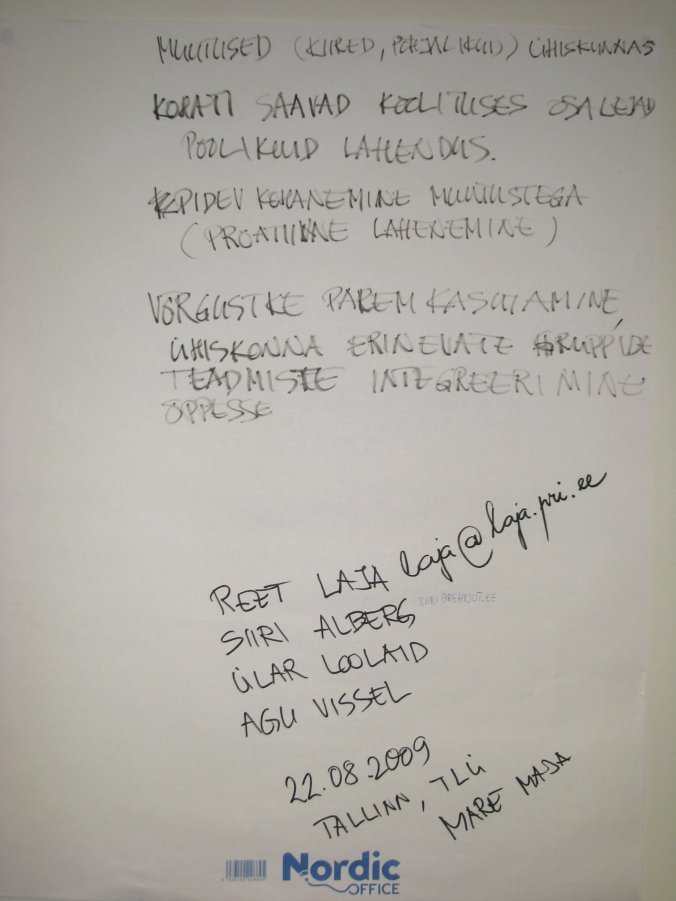 MUUTUSED (KIIRED, PÕHJALIKUD) ÜHISKUNNAS
KORATI SAAVAD KOOLITUSES OSALEJAD
POOLIKUD LAHENDUS.
PIDEV KOHANEMINE MUUTUSTEGA
(PROATIIVNE LAHENEMINE)
VÕRGUSTKE PAREM KASUTAMINE,
ÜHISKONNA ERINEVATE GRUPPIDE
TEADMISTE INTEGREERIMINE
ÕPPESSE
REET LAJA laja@laja.pri.ee
SIIRI ALBERG
ÜLAR LOOLAID
AGU VISSEL
22.08.2009
TALLINN, TLÜ
MARE MAJA
Nordic
OFFICE